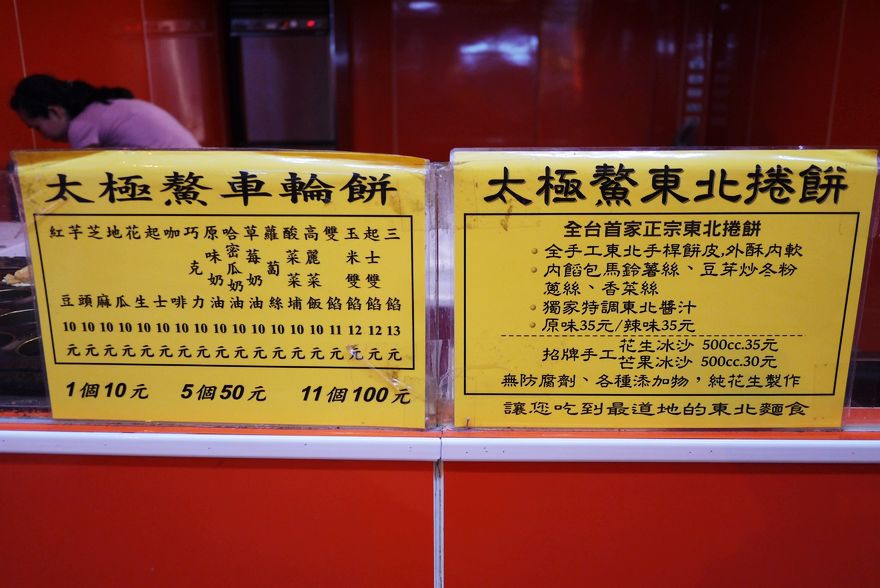 太極鰲車輪餅
紅豆 10元
芋頭 10元
芝麻 10元
地瓜 10元
花生 10元
起士 10元
咖啡 10元
巧克力 10元
原味奶油 10元
哈密瓜奶油 10元
草莓奶油 10元
蘿蔔絲 10元
酸菜菜埔 10元
高麗菜飯 10元
雙餡 11元
玉米雙餡 12元
起士雙餡 12元
三餡 13元
1個10元 5個50元 11個100元
太極鰲東北捲餅
全台首家正宗東北捲餅
• 全手工東北手桿餅皮,外酥內軟
• 內餡包馬鈴薯絲、豆芽炒冬粉
蔥絲、香菜絲
• 獨家特調東北醬汁
• 原味35元/辣味35元
招牌手工 花生冰沙 500cc.35元
芒果冰沙 500cc.30元
無防腐劑、各種添加物，純花生製作
讓您吃到最道地的東北麵食